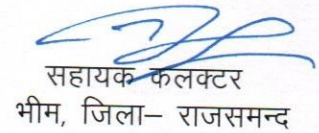 सहायक कलक्टर
भीम, जिला– राजसमन्द